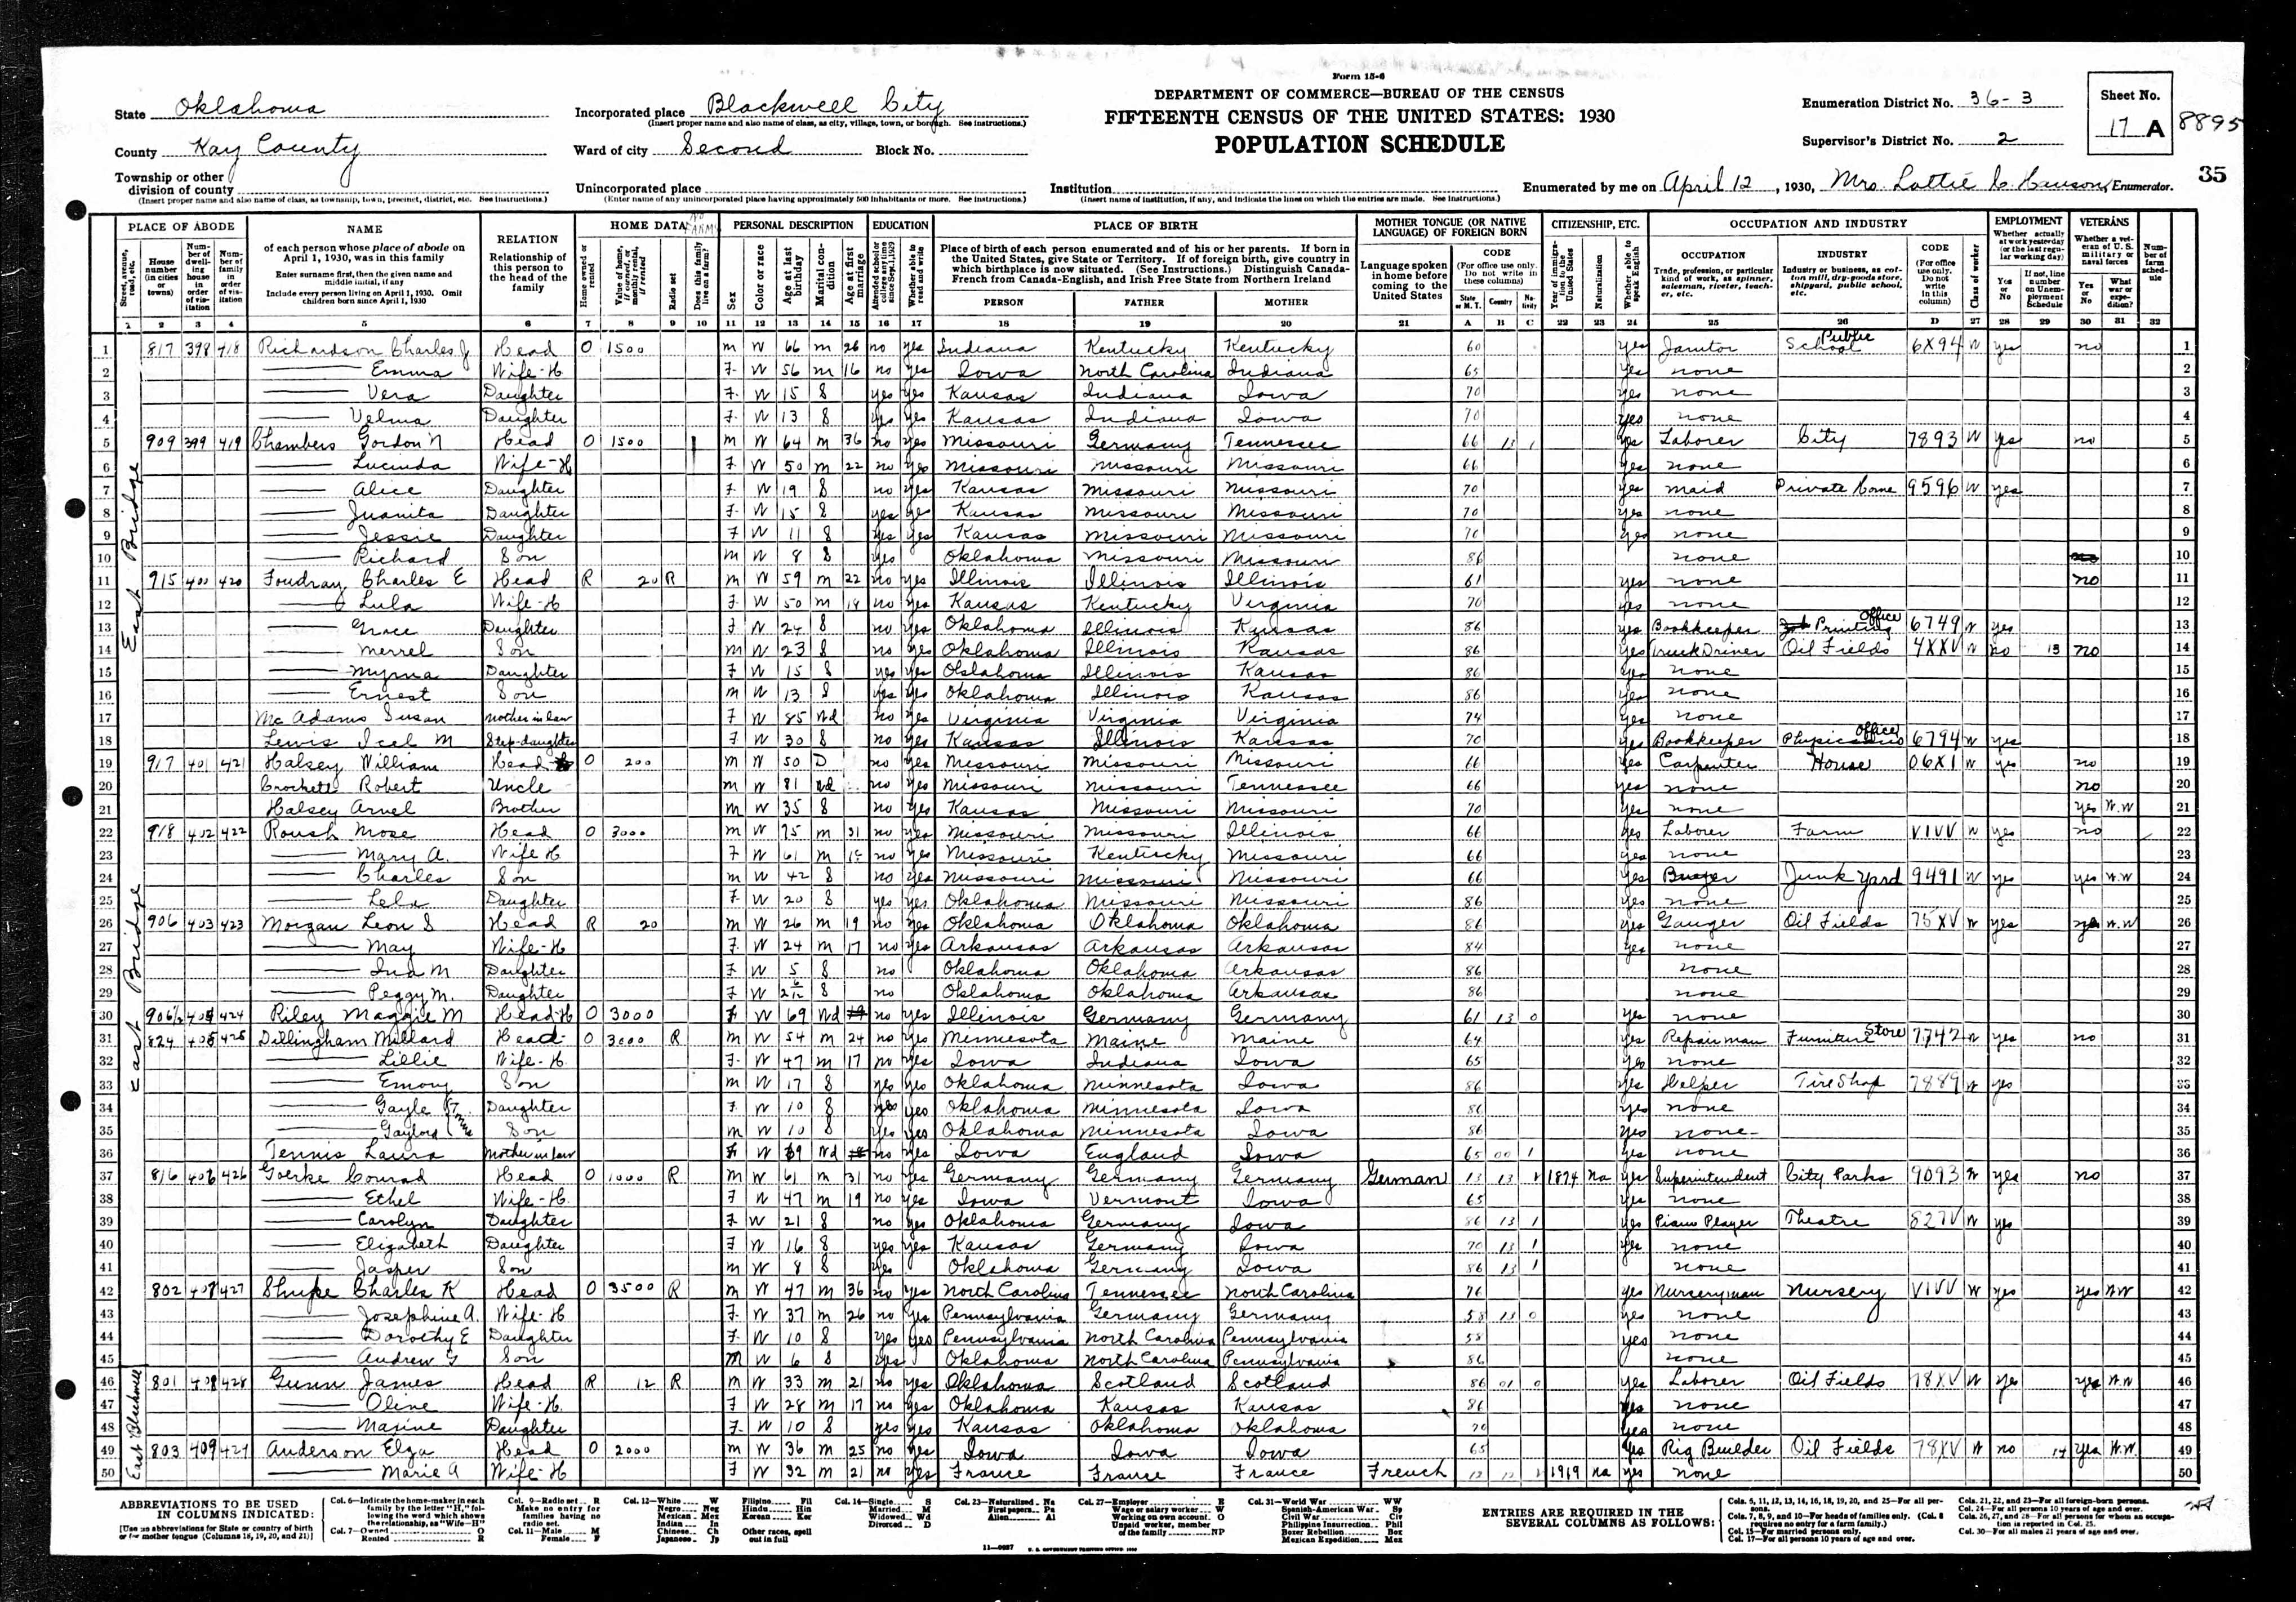 Form 15-6
DEPARTMENT OF COMMERCE—BUREAU OF THE CENSUS
FIFTEENTH CENSUS OF THE UNITED STATES: 1930
POPULATION SCHEDULE
State Oklahoma
County Kay County
Township or other division of county
(Insert proper name and also name of class, as township, town, precinct, district, etc. See instructions.)
Incorporated place Blackwell City
(Insert proper name and also name of class, as city, village, town, or borough. See instructions.)
Ward of city Second Block No.
Unincorporated place
(Enter name of any unincorporated place having approximately 500 inhabitants or more. See instructions.)
Institution
(Insert name of institution, if any, and indicate the lines on which the entries are made. See instructions.)
Enumeration District No. 36-3
Supervisor's District No. 2
Sheet No. 17 A
8895
35
Enumerated by me on April 12, 1930, Mrs. Lottie C. Hanson, Enumerator.
PLACE OF ABODE NAME RELATION HOME DATA PERSONAL DESCRIPTION EDUCATION PLACE OF BIRTH MOTHER TONGUE (OR NATIVE LANGUAGE) OF FOREIGN BORN CITIZENSHIP, ETC. OCCUPATION AND INDUSTRY EMPLOYMENT VETERANS
East Bridge
1 817 398 418 Richardson Charles J Head O 1500 M W 66 M 26 no yes Indiana Kentucky Kentucky 60 yes Janitor Public School 6X94 W yes no 1
2 Emma Wife-H F W 56 M 16 no yes Iowa North Carolina Indiana 65 yes none 2
3 Vera Daughter F W 15 S yes yes Kansas Indiana Iowa 70 yes none 3
4 Velma Daughter F W 13 S yes yes Kansas Indiana Iowa 70 yes none 4
5 909 399 419 Chambers Gordon N Head O 1500 M W 64 M 36 no yes Missouri Germany Tennessee 66 13 1 yes Laborer City 7893 W yes no 5
6 Lucinda Wife-H F W 50 M 22 no yes Missouri Missouri Missouri 66 yes none 6
7 Alice Daughter F W 19 S no yes Kansas Missouri Missouri 70 yes maid Private home 9596 W yes 7
8 Juanita Daughter F W 15 S yes yes Kansas Missouri Missouri 70 yes none 8
9 Jessie Daughter F W 11 S yes yes Kansas Missouri Missouri 70 yes none 9
10 Richard Son M W 8 S yes Oklahoma Missouri Missouri 86 none 10
11 915 400 420 Foudray Charles E Head R 20 R M W 59 M 22 no yes Illinois Illinois Illinois 61 yes none no 11
12 Lula Wife-H F W 50 M 18 no yes Kansas Kentucky Virginia 70 yes none 12
13 Grace Daughter F W 24 S no yes Oklahoma Illinois Kansas 86 yes Bookkeeper Printing Office 6749 W yes 13
14 Merrel Son M W 23 S no yes Oklahoma Illinois Kansas 86 yes Truck Driver Oil Fields 4XXV W no 13 no 14
15 Myrna Daughter F W 15 S yes yes Oklahoma Illinois Kansas 86 yes none 15
16 Ernest Son M W 13 S yes yes Oklahoma Illinois Kansas 86 yes none 16
17 McAdams Susan Mother in law F W 85 Wd no yes Virginia Virginia Virginia 74 yes none 17
18 Lewis Icel M Step-daughter F W 30 S no yes Kansas Illinois Kansas 70 yes Bookkeeper Physicians Office 6794 W yes 18
19 917 401 421 Halsey William Head O 200 M W 50 D no yes Missouri Missouri Missouri 66 yes Carpenter House 06X1 W yes no 19
20 Crockett Robert Uncle M W 81 Wd no yes Missouri Missouri Tennessee 66 yes none no 20
21 Halsey Arvel Brother M W 35 S no yes Kansas Missouri Missouri 70 yes none yes W.W 21
22 918 402 422 Roush Mose Head O 3000 M W 75 M 31 no yes Missouri Missouri Illinois 66 yes Laborer Farm VIVV W yes no 22
23 Mary A. Wife H F W 61 M no yes Missouri Kentucky Missouri 66 yes none 23
24 Charles Son M W 42 S no yes Missouri Missouri Missouri 66 yes Buyer Junk Yard 9491 W yes yes W.W 24
25 Lela Daughter F W 20 S yes yes Oklahoma Missouri Missouri 86 yes none 25
26 906 403 423 Morgan Leon S Head R 20 M W 26 M 19 no yes Oklahoma Oklahoma Oklahoma 86 yes Gauger Oil Fields 75XV W yes W.W 26
27 May Wife-H F W 24 M 17 no yes Arkansas Arkansas Arkansas 84 yes none 27
28 Ina M Daughter F W 5 S no Oklahoma Oklahoma Arkansas 86 none 28
29 Peggy M. Daughter F W 2 6/12 S no Oklahoma Oklahoma Arkansas 86 none 29
30 906½ 404 424 Riley Maggie M Head-H O 3000 F W 69 Wd no yes Illinois Germany Germany 61 13 0 yes none 30
31 824 405 425 Dillingham Millard Head O 3000 R M W 54 M 24 no yes Minnesota Maine Maine 64 yes Repairman Furniture Store 7742 W yes no 31
32 Lillie Wife-H F W 47 M 17 no yes Iowa Indiana Iowa 65 yes none 32
33 Emory Son M W 17 S yes yes Oklahoma Minnesota Iowa 86 yes Helper Tire Shop 7889 W yes 33
34 Gayle Twins Daughter F W 10 S yes yes Oklahoma Minnesota Iowa 86 yes none 34
35 Gaylord Son M W 10 S yes yes Oklahoma Minnesota Iowa 86 yes none 35
36 Tennis Laura Mother in law F W 69 Wd no yes Iowa England Iowa 65 00 1 yes none 36
37 816 406 426 Goerke Conrad Head O 1000 R M W 61 M 31 no yes Germany Germany Germany German 13 13 V 1874 Na yes Superintendent City Parks 9093 W yes no 37
38 Ethel Wife-H. F W 47 M 19 no yes Iowa Vermont Iowa 65 yes none 38
39 Carolyn Daughter F W 21 S no yes Oklahoma Germany Iowa 86 13 1 yes Piano Player Theatre 827V W yes 39
40 Elizabeth Daughter F W 16 S yes yes Kansas Germany Iowa 70 13 1 yes none 40
41 Jasper Son M W 8 S yes Oklahoma Germany Iowa 86 13 1 none 41
42 802 407 427 Shupe Charles K Head O 3500 R M W 47 M 36 no yes North Carolina Tennessee North Carolina 76 yes Nurseryman Nursery VIVV W yes yes WW 42
43 Josephine A. Wife-H F W 37 M 26 no yes Pennsylvania Germany Germany 58 13 0 yes none 43
44 Dorothy E Daughter F W 10 S yes yes Pennsylvania North Carolina Pennsylvania 58 yes none 44
45 Andrew G Son M W 6 S yes Oklahoma North Carolina Pennsylvania 86 none 45
East Blackwell
46 801 408 428 Gunn James Head R 12 R M W 33 M 21 no yes Oklahoma Scotland Scotland 86 01 0 yes Laborer Oil Fields 78XV W yes yes W.W 46
47 Olive Wife-H. F W 28 M 17 no yes Oklahoma Kansas Kansas 86 yes none 47
48 Maxine Daughter F W 10 S yes yes Kansas Oklahoma Oklahoma 70 yes none 48
49 803 409 429 Anderson Elza Head O 2000 M W 36 M 25 no yes Iowa Iowa Iowa 65 yes Rig Builder Oil Fields 78XV W no 14 yes W.W. 49
50 Marie A Wife-H F W 32 M 21 no yes France France France French 12 12 V 1919 na yes none 50
ABBREVIATIONS TO BE USED IN COLUMNS INDICATED:
[Use no abbreviations for State or country of birth or for mother tongue (Columns 18, 19, 20, and 21)]
ENTRIES ARE REQUIRED IN THE SEVERAL COLUMNS AS FOLLOWS: